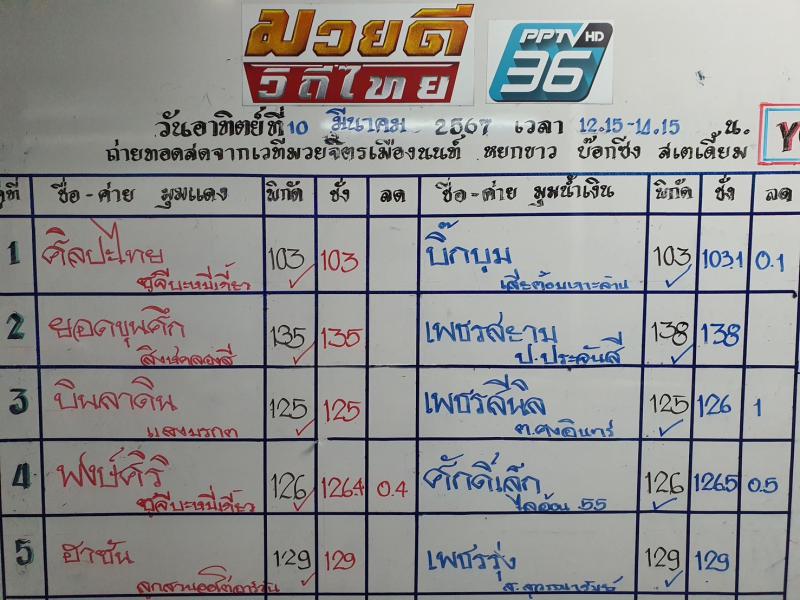 มวยดี
วิถีไทย
PPTV HD
36
วันอาทิตย์ที่ 10 มีนาคม 2567 เวลา 12.15-14.15 น.
ถ่ายทอดสดจากเวทีมวยจิตรเมืองนนท์ หยกขาว บ๊อกซิ่ง สเตเดี้ยม
ชื่อ-ค่าย มุมแดง พิกัด ชั่ง ลด ชื่อ-ค่าย มุมน้ำเงิน พิกัด ชั่ง ลด
1 ศิลปะไทย 103 103 บิ๊กบุม 103 103.1 0.1
กู๋จี๊บะหมี่เกี๊ยว เสี่ยต้อมเกาะล้าน
2 ยอดขุนศึก 135 135 เพชรสยาม 138 138
สิงห์คลองสี่ ป.ประจันสี
3 บินลาดิน 125 125 เพชรสีนิล 125 126 1
แสงมรกต ต.คงอินทร์
4 พงษ์ศิริ 126 126.4 0.4 ศักดิ์เล็ก 126 126.5 0.5
กู๋จี๊บะหมี่เกี๊ยว 55
5 ฮาซัน 129 129 เพชรรุ่ง 129 129